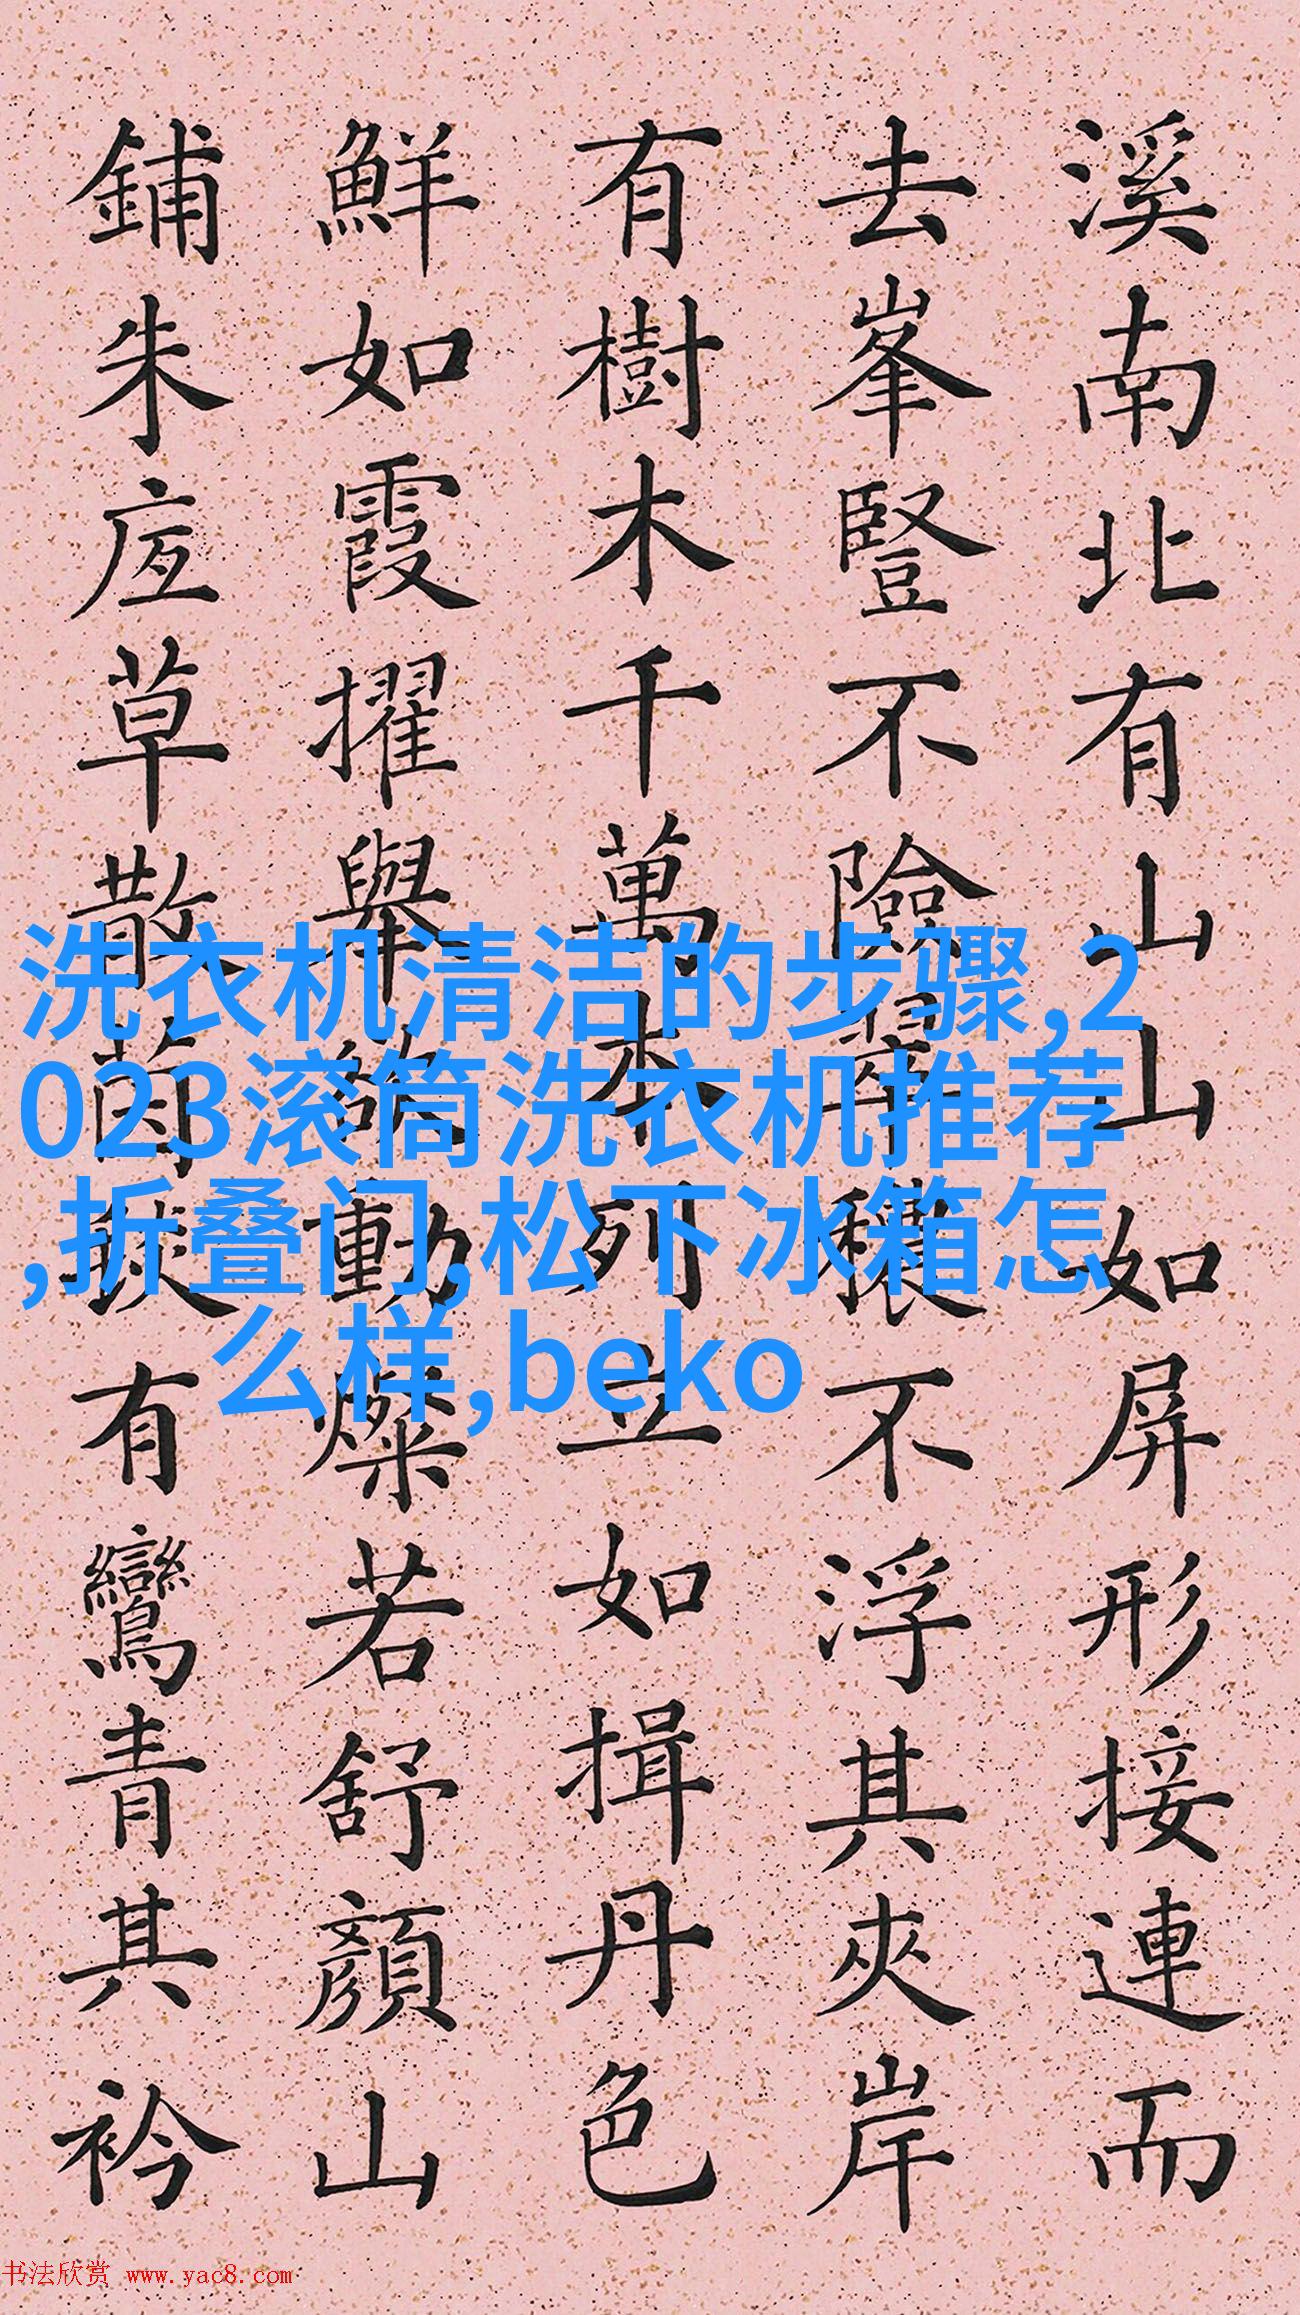 溪南北有山山如屏形接連而
去峯豎不險翠穠不浮其夾岸
有樹木千萬本列立如揖丹色
鮮如霞擢舉欲動燦若舒顏山
鋪朱草散茵有鸞青其衿
洗衣机清洁的步骤,2
023滚筒洗衣机推荐
,折叠门,松下冰箱怎
么样,beko
书法欣赏 www.yac8.com